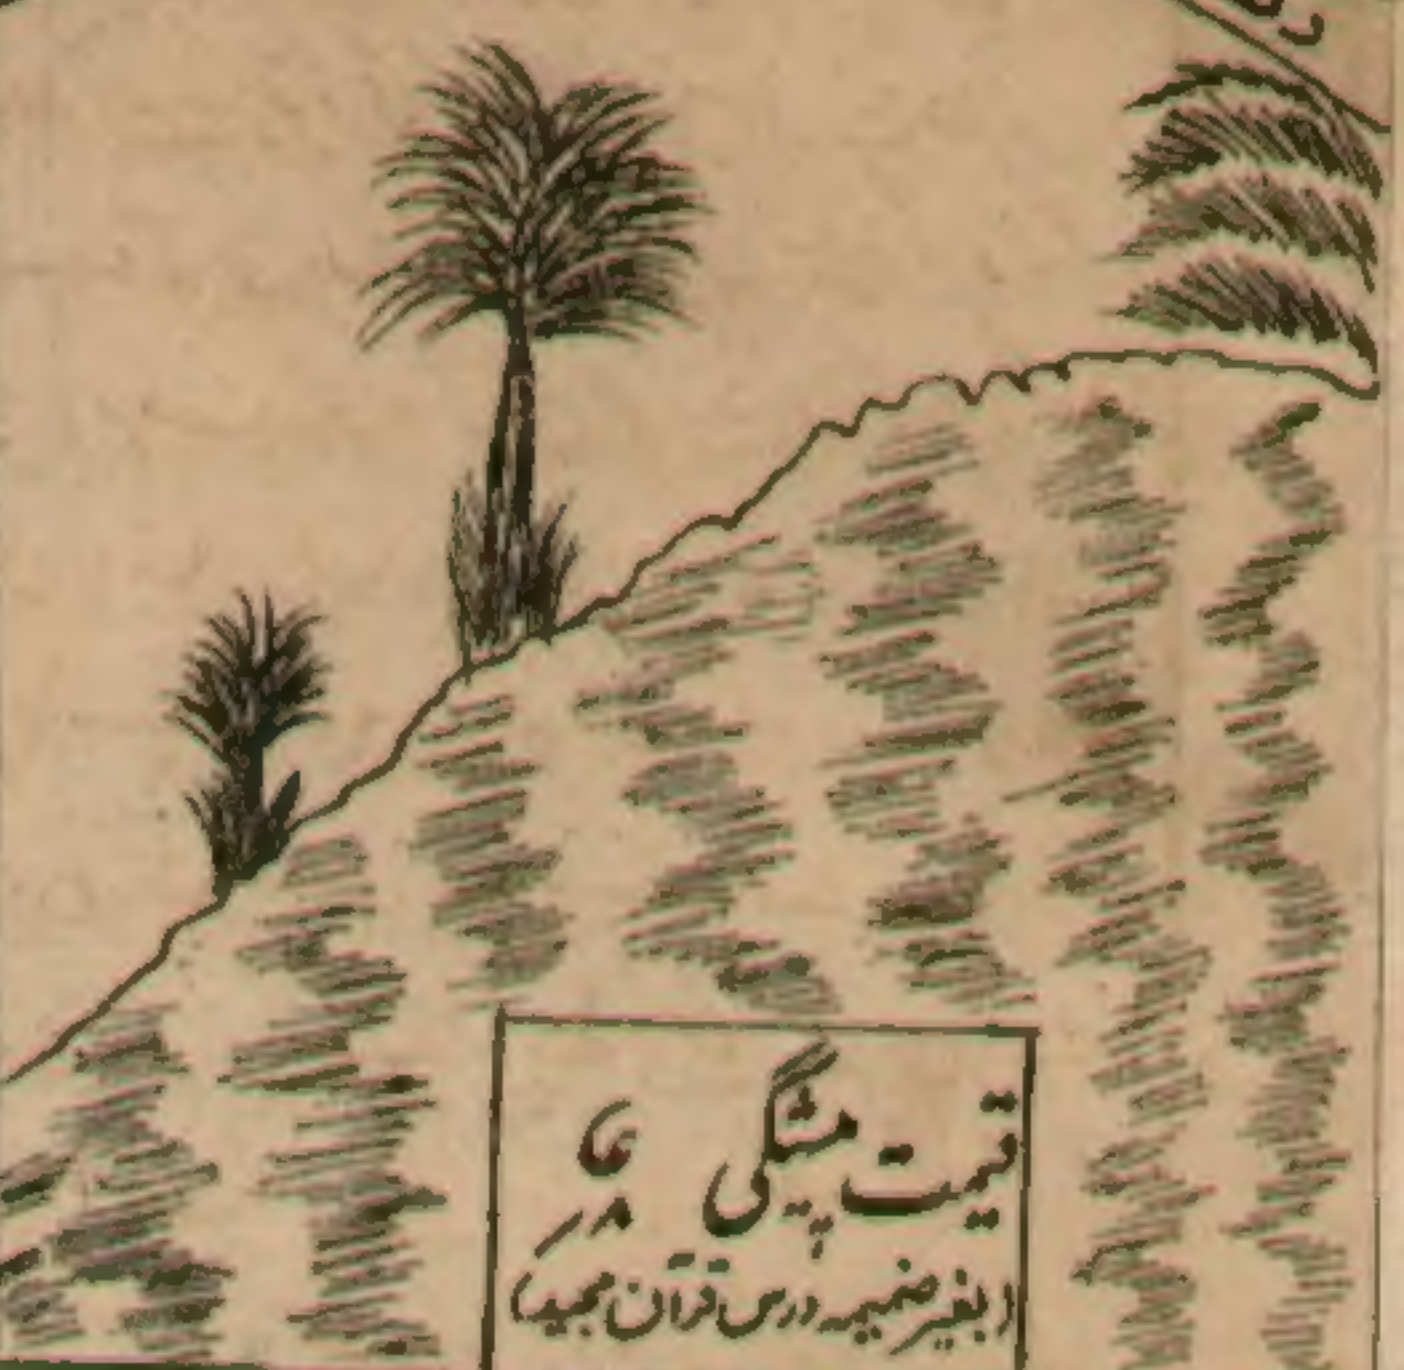 قیمت پیشگی
(بغیر ضمیمہ درس قرآن مجید)